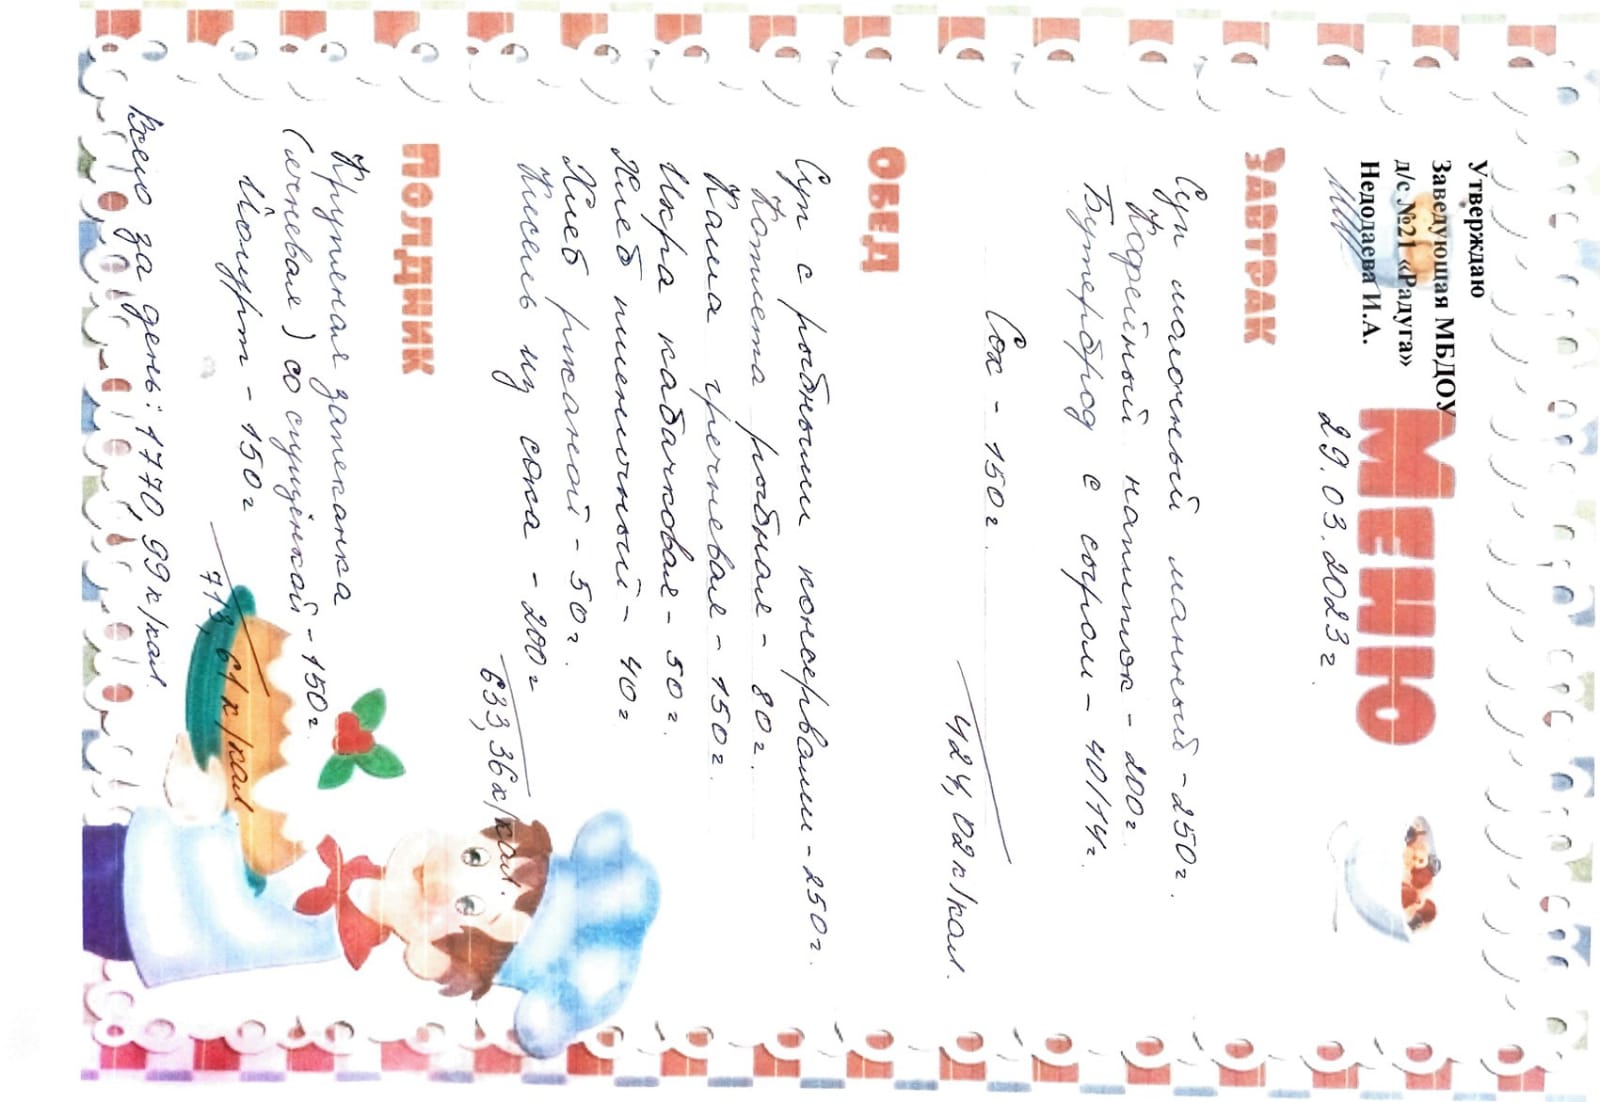 Утверждаю
Заведующая МБДОУ
д/с №21 «Радуга»
Недодаева И.А.
Меню
29.03.2023г.
Завтрак
Суп молочный манный - 250г.
Кофейный напиток - 200г.
Бутерброд с сыром - 40/14г.
Сок - 150г.
424,02к/кал.
Обед
Суп с рыбными консервами - 250г.
Котлета рыбная - 80г.
Каша гречневая - 150г.
Икра кабачковая - 50г.
Хлеб пшеничный - 40г
Хлеб ржаной - 50г.
Кисель из сока - 200г
633,36к/кал.
Полдник
Крупяная запеканка
(ячневая) со сгущёнкой - 150г.
Йогурт - 150г
713,61к/кал.
Всего за день: 1770,99к/кал.